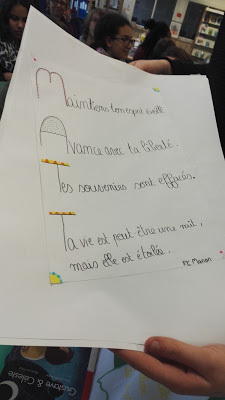 Maintiens ton esprit éveillé.
Avance avec ta liberté.
Tes souvenirs sont effacés.
Ta vie est peut être une nuit,
mais elle est étoilée.
Manon
Gustave & Céleste